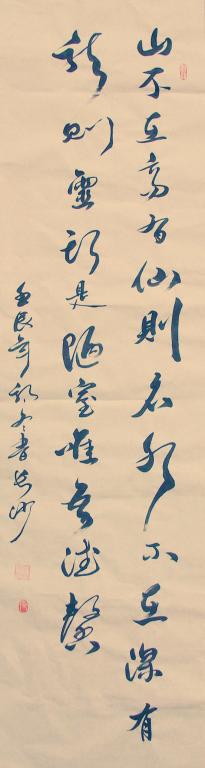 山不在高有仙則名水不在深有
龍則靈斯是陋室惟吾德馨
壬辰年初冬書